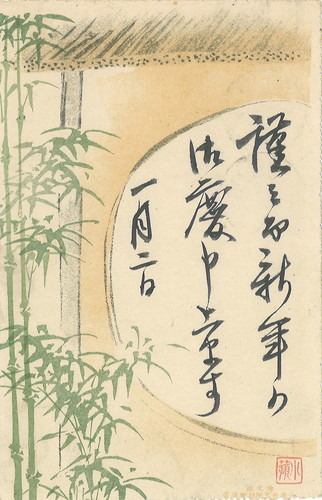 謹而新年の
御慶申上候
一月二日